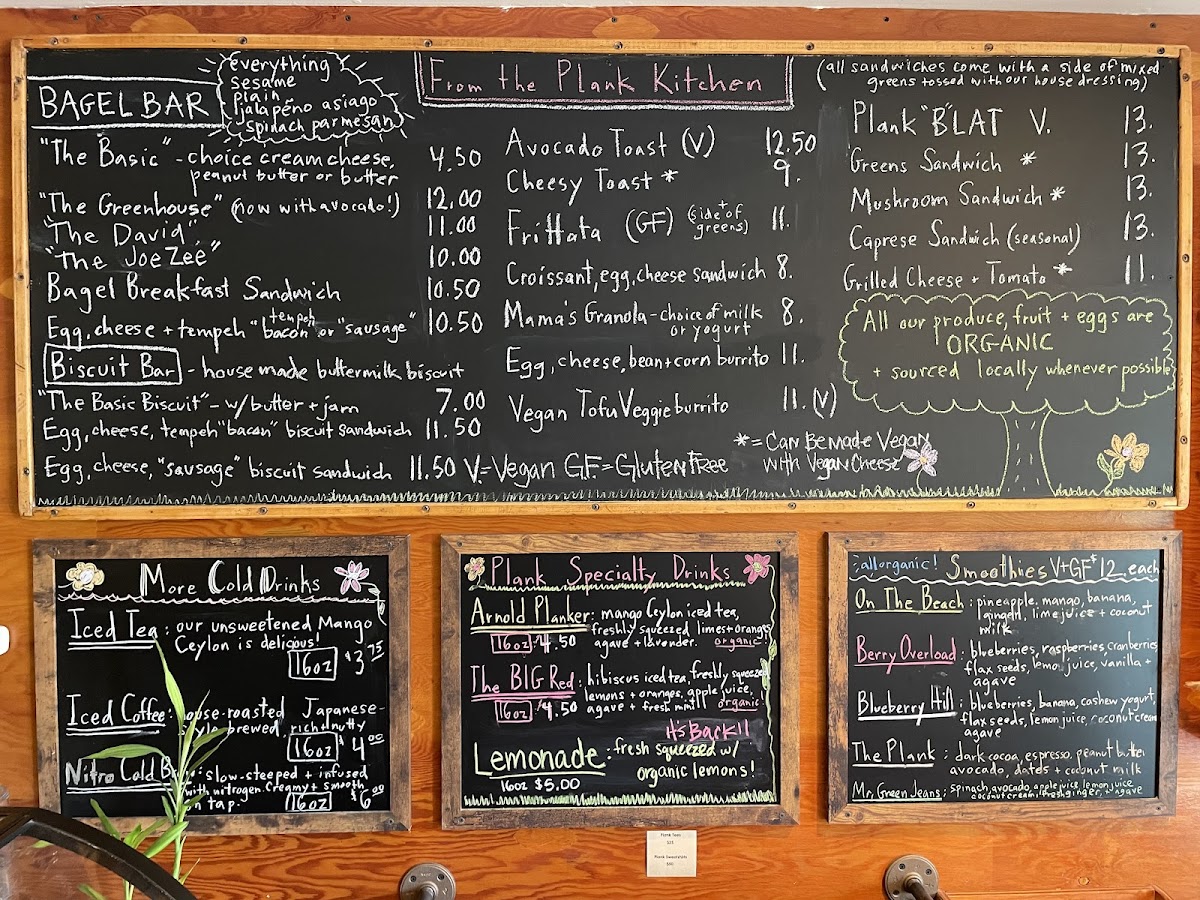 BAGEL BAR
everything
sesame
plain
jalapeño asiago
spinach parmesan
"The Basic" - choice cream cheese, 4.50
peanut butter or butter
"The Greenhouse" (now with avocado!) 12.00
"The David" 11.00
"The Joe Zee" 10.00
Bagel Breakfast Sandwich 10.50
tempeh
Egg, cheese + tempeh "bacon" or "sausage" 10.50
Biscuit Bar - house made buttermilk biscuit
"The Basic Biscuit" - w/ butter + jam 7.00
Egg, cheese, tempeh "bacon" biscuit sandwich 11.50
Egg, cheese, "sausage" biscuit sandwich 11.50
From the Plank Kitchen
Avocado Toast (V) 12.50
Cheesy Toast * 9.
Frittata (GF) (side of greens) 11.
Croissant, egg, cheese sandwich 8.
Mama's Granola - choice of milk 8.
or yogurt
Egg, cheese, bean + corn burrito 11.
Vegan Tofu Veggie burrito 11. (V)
V = Vegan GF = Gluten Free
* = Can Be made Vegan
with Vegan Cheese
(all sandwiches come with a side of mixed
greens tossed with our house dressing)
Plank "B"LAT V. 13.
Greens Sandwich * 13.
Mushroom Sandwich * 13.
Caprese Sandwich (seasonal) 13.
Grilled Cheese + Tomato * 11.
All our produce, fruit + eggs are
ORGANIC
+ sourced locally whenever possible
More Cold Drinks
Iced Tea: our unsweetened Mango
Ceylon is delicious!
16oz $3.75
Iced Coffee: house-roasted Japanese-
style brewed, rich + nutty
16oz $4.00
Nitro Cold Brew: slow-steeped + infused
with nitrogen. Creamy + smooth
on tap. 16oz $6.00
Plank Specialty Drinks
Arnold Planker: mango Ceylon iced tea,
freshly squeezed limes + oranges
agave + lavender. organic
16oz $4.50
The BIG Red: hibiscus iced tea, freshly squeezed
lemons + oranges, apple juice,
agave + fresh mint organic
16oz $4.50
it's Back!!
Lemonade: fresh squeezed w/
organic lemons!
16oz $5.00
all organic! Smoothies V+GF $12. each
On The Beach: pineapple, mango, banana,
ginger, lime juice + coconut
milk
Berry Overload: blueberries, raspberries, cranberries,
flax seeds, lemon juice, vanilla +
agave
Blueberry Hill: blueberries, banana, cashew yogurt,
flax seeds, lemon juice, coconut cream
agave
The Plank: dark cocoa, espresso, peanut butter
avocado, dates + coconut milk
Mr. Green Jeans: spinach, avocado, apple juice, lemon juice
coconut cream, fresh ginger, + agave
Plank Tees
$25
Plank Sweatshirts